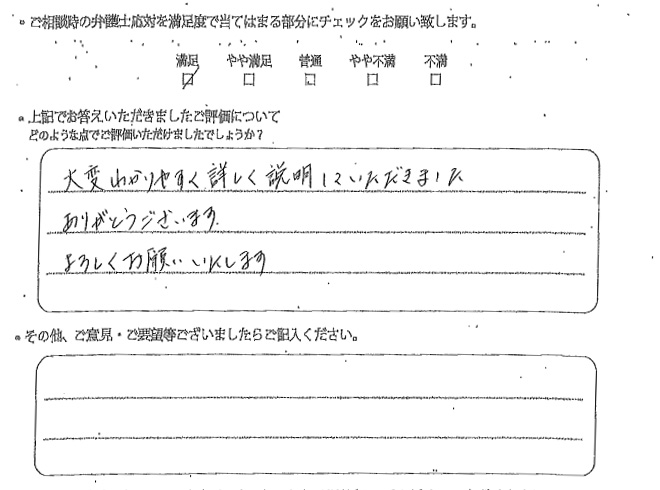 ご相談時の弁護士応対を満足度で当てはまる部分にチェックをお願い致します。
満足 やや満足 普通 やや不満 不満
上記でお答えいただきましたご評価について
どのような点でご評価いただけましたでしょうか?
大変わかりやすく詳しく説明していただきました
ありがとうございます
よろしくお願いいたします
その他、ご意見・ご要望等ございましたらご記入ください。